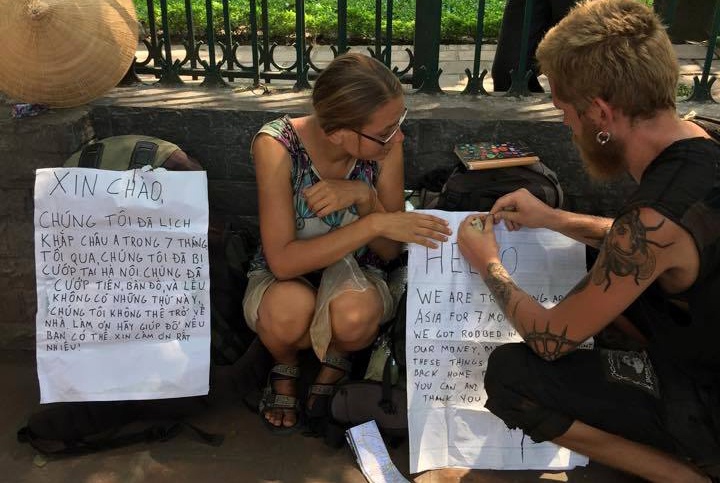 XIN CHAO,
CHÚNG TÔI ĐÃ LỊCH
KHẮP CHÂU A TRONG 7 THÁNG
TỐI QUA, CHÚNG TÔI ĐÃ BỊ
CƯỚP TẠI HÀ NỘI. CHÚNG ĐÃ
CƯỚP TIỀN, BẢN ĐỒ, VÀ LỀU
KHÔNG CÓ NHỮNG THỨ NÀY,
CHÚNG TÔI KHÔNG THỂ TRỞ VỀ
NHÀ LÀM ƠN HÃY GIÚP ĐỠ NẾU
BẠN CÓ THỂ XIN CẢM ƠN RẤT
NHIỀU!
HELLO
WE ARE
ASIA FOR 7
WE GOT ROBBED IN
OUR MONEY,
THESE THINGS
BACK HOME
YOU CAN
THANK YOU